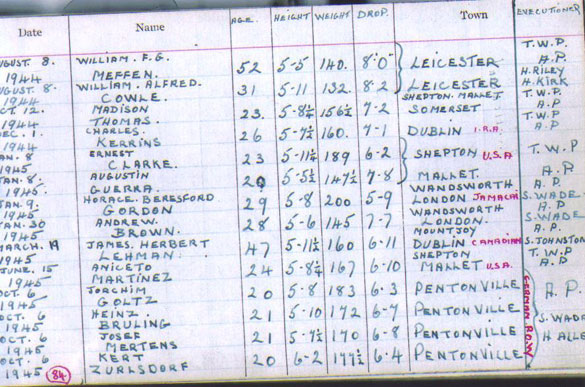 Date Name AGE. HEIGHT WEIGHT DROP. Town EXECUTIONER
AUGUST 8. WILLIAM. F.G. T.W.P.
1944 MEFFEN. 52 5-5 140. 8'0" LEICESTER A.P.
AUGUST. 8. WILLIAM. ALFRED. H. RILEY
1944 COWLE. 31 5-11 132. 8-2 LEICESTER H. KIRK
OCT. 12. MADISON SHEPTON. MALLET. T.W.P.
1944 THOMAS. 23. 5-8¼ 156½ 7-2 SOMERSET A.P
DEC. 1. CHARLES. T.W.P
1944 KERRINS. 26 5-7½ 160. 7-1 DUBLIN I.R.A. A.P.
JAN. 8 ERNEST
1945 CLARKE. 23 5-11¼ 189 6-2 SHEPTON U.S.A T.W.P
JAN. 8. AUGUSTIN
1945. GUERRA. 20 5-5½ 147½ 7-8 MALLET. A.P.
JAN. 9. HORACE. BERESFORD WANDSWORTH A.P.
1945. GORDON 29 5-8 200 5-9 LONDON JAMACIA S. WADE.
JAN. 30 ANDREW. WANDSWORTH A.P
1945 BROWN. 28 5-6 145 7-7 LONDON. S. WADE
MARCH. 19 JAMES. HERBERT MOUNTJOY A.P.
1945 LEHMAN. 47 5-11½ 160 6-11 DUBLIN CANADIAN S. JOHNSTON
JUNE. 15 ANICETO SHEPTON T.W.P
1945 MARTINEZ 24 5-8¼ 167 6-10 MALLET U.S.A. A.P
OCT. 6. JOACHIM GERMAN. P.O.W
1945. GOLTZ 20 5-8 183 6-3 PENTONVILLE A.P.
OCT. 6 HEINZ.
1945 BRULING 21 5-10 172 6-7 PENTONVILLE S. WADE
OCT. 6 JOSEF
1945 MERTENS 21 5-7½ 170 6-8 PENTONVILLE H ALL
OCT. 6 KERT
1945 84 ZURLSDORF 20 6-2 177½ 6-4 PENTONVILLE